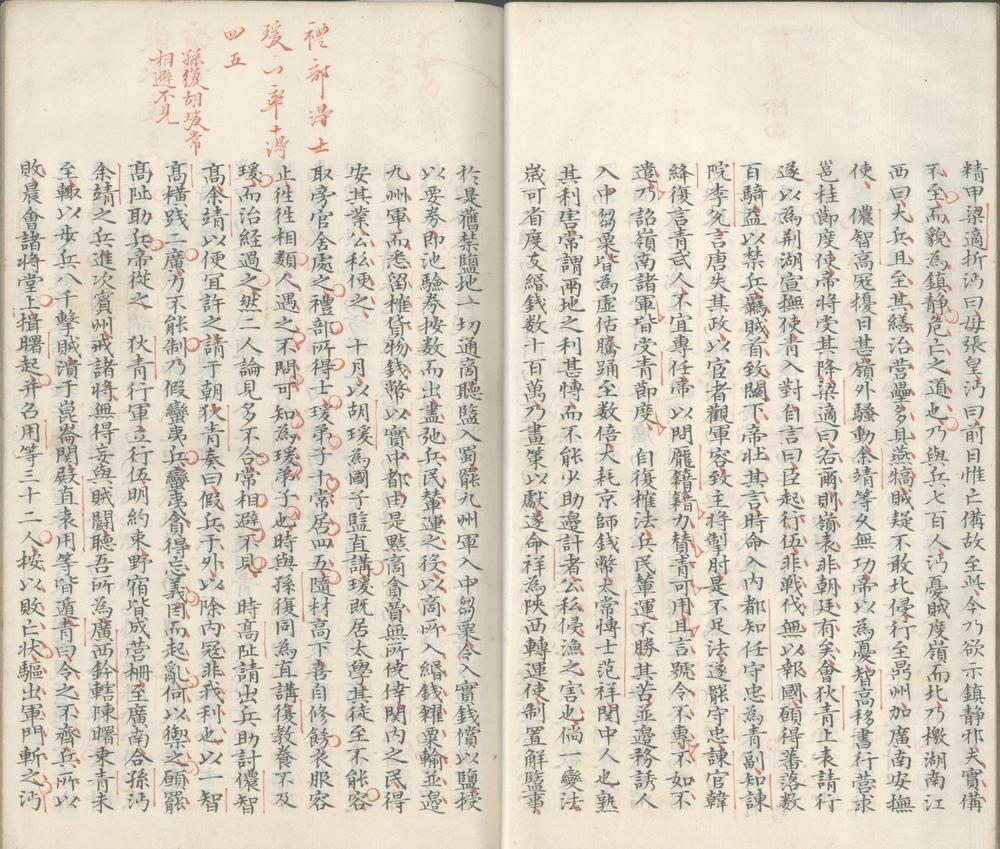 精甲梁適折沔曰毋張皇沔曰前日惟亡備故至此今乃欲示鎮静邪夫實備
不至而貌為鎮静危亡之道也乃與兵七百人沔憂賊度嶺而北乃檄湖南江
西曰大兵且至其繕治營壘多具燕犒賊疑不敢北侵行至鼎州加廣南安撫
使儂智高冦擾日甚嶺外騷動余靖等久無功帝以為憂智高移書行營求
邕桂節度使帝將受其降梁適曰若爾則嶺表非朝廷有矣會狄青上表請行
遂以為荆湖宣撫使青入對自言曰臣起行伍非戰伐無以報國願得蕃落數
百騎益以禁兵羈賊首致闕下帝壯其言時命入内都知任守忠為青副知諫
院李兊言唐失其政以宦者觀軍容致主將掣肘是不足法遂罷守忠諫官韓
絳復言青武人不宜專任帝以問龐籍籍力贊青可用且言號令不專不如不
遣乃詔嶺南諸軍皆受青節度自復榷法兵民輦運不勝其苦並邊務誘人
入中芻粟皆為虚估騰踊至數倍大耗京師錢幣太常博士范祥関中人也熟
其利害常謂兩地之利甚博而不能少助邊計者公私侵漁之害也倘一變法
歲可省度支緡錢数十百萬乃畫策以獻遂命祥為陝西轉運使制置解鹽事
於是舊禁鹽地一切通商聽鹽入蜀罷九州軍入中芻粟令入實錢償以鹽授
以要券即池驗券按数而出盡弛兵民輦運之役以商所入緡錢糴粟輸並邊
九州軍而悉留榷貨物錢幣以實中都由是黠商貪賈無所僥倖関内之民得
安其業公私便之十月以胡瑗為國子監直講瑗既居太學其徒至不能容
取旁官舍處之禮部所得士瑗弟子十常居四五隨材高下喜自修飾衣服容
止往往相類人遇之不問可知為瑗弟子也時與孫復同為直講復教養不及
瑗而治經過之然二人論見多不合常相避不見時髙阯請出兵助討儂智
髙余靖以便宜許之請于朝狄青奏曰假兵于外以除内冦非我利也以一智
髙横踐二廣力不能制乃假蠻夷兵蠻夷貪得忘義因而起亂何以禦之願罷
髙阯助兵帝從之狄青行軍立行伍明約束野宿皆成營柵至廣南合孫沔
余靖之兵進次賓州戒諸將無得妄與賊闘聽吾所為廣西鈐轄陳曙乘青未
至輒以步兵八千擊賊潰于崑崙関殿直袁用等皆遁青曰令之不齊兵所以
敗晨會諸將堂上揖曙起并召用等三十二人按以敗亡状驅出軍門斬之沔
禮部得士
瑗八率十得
四五
孫復胡瑗常
相避不見